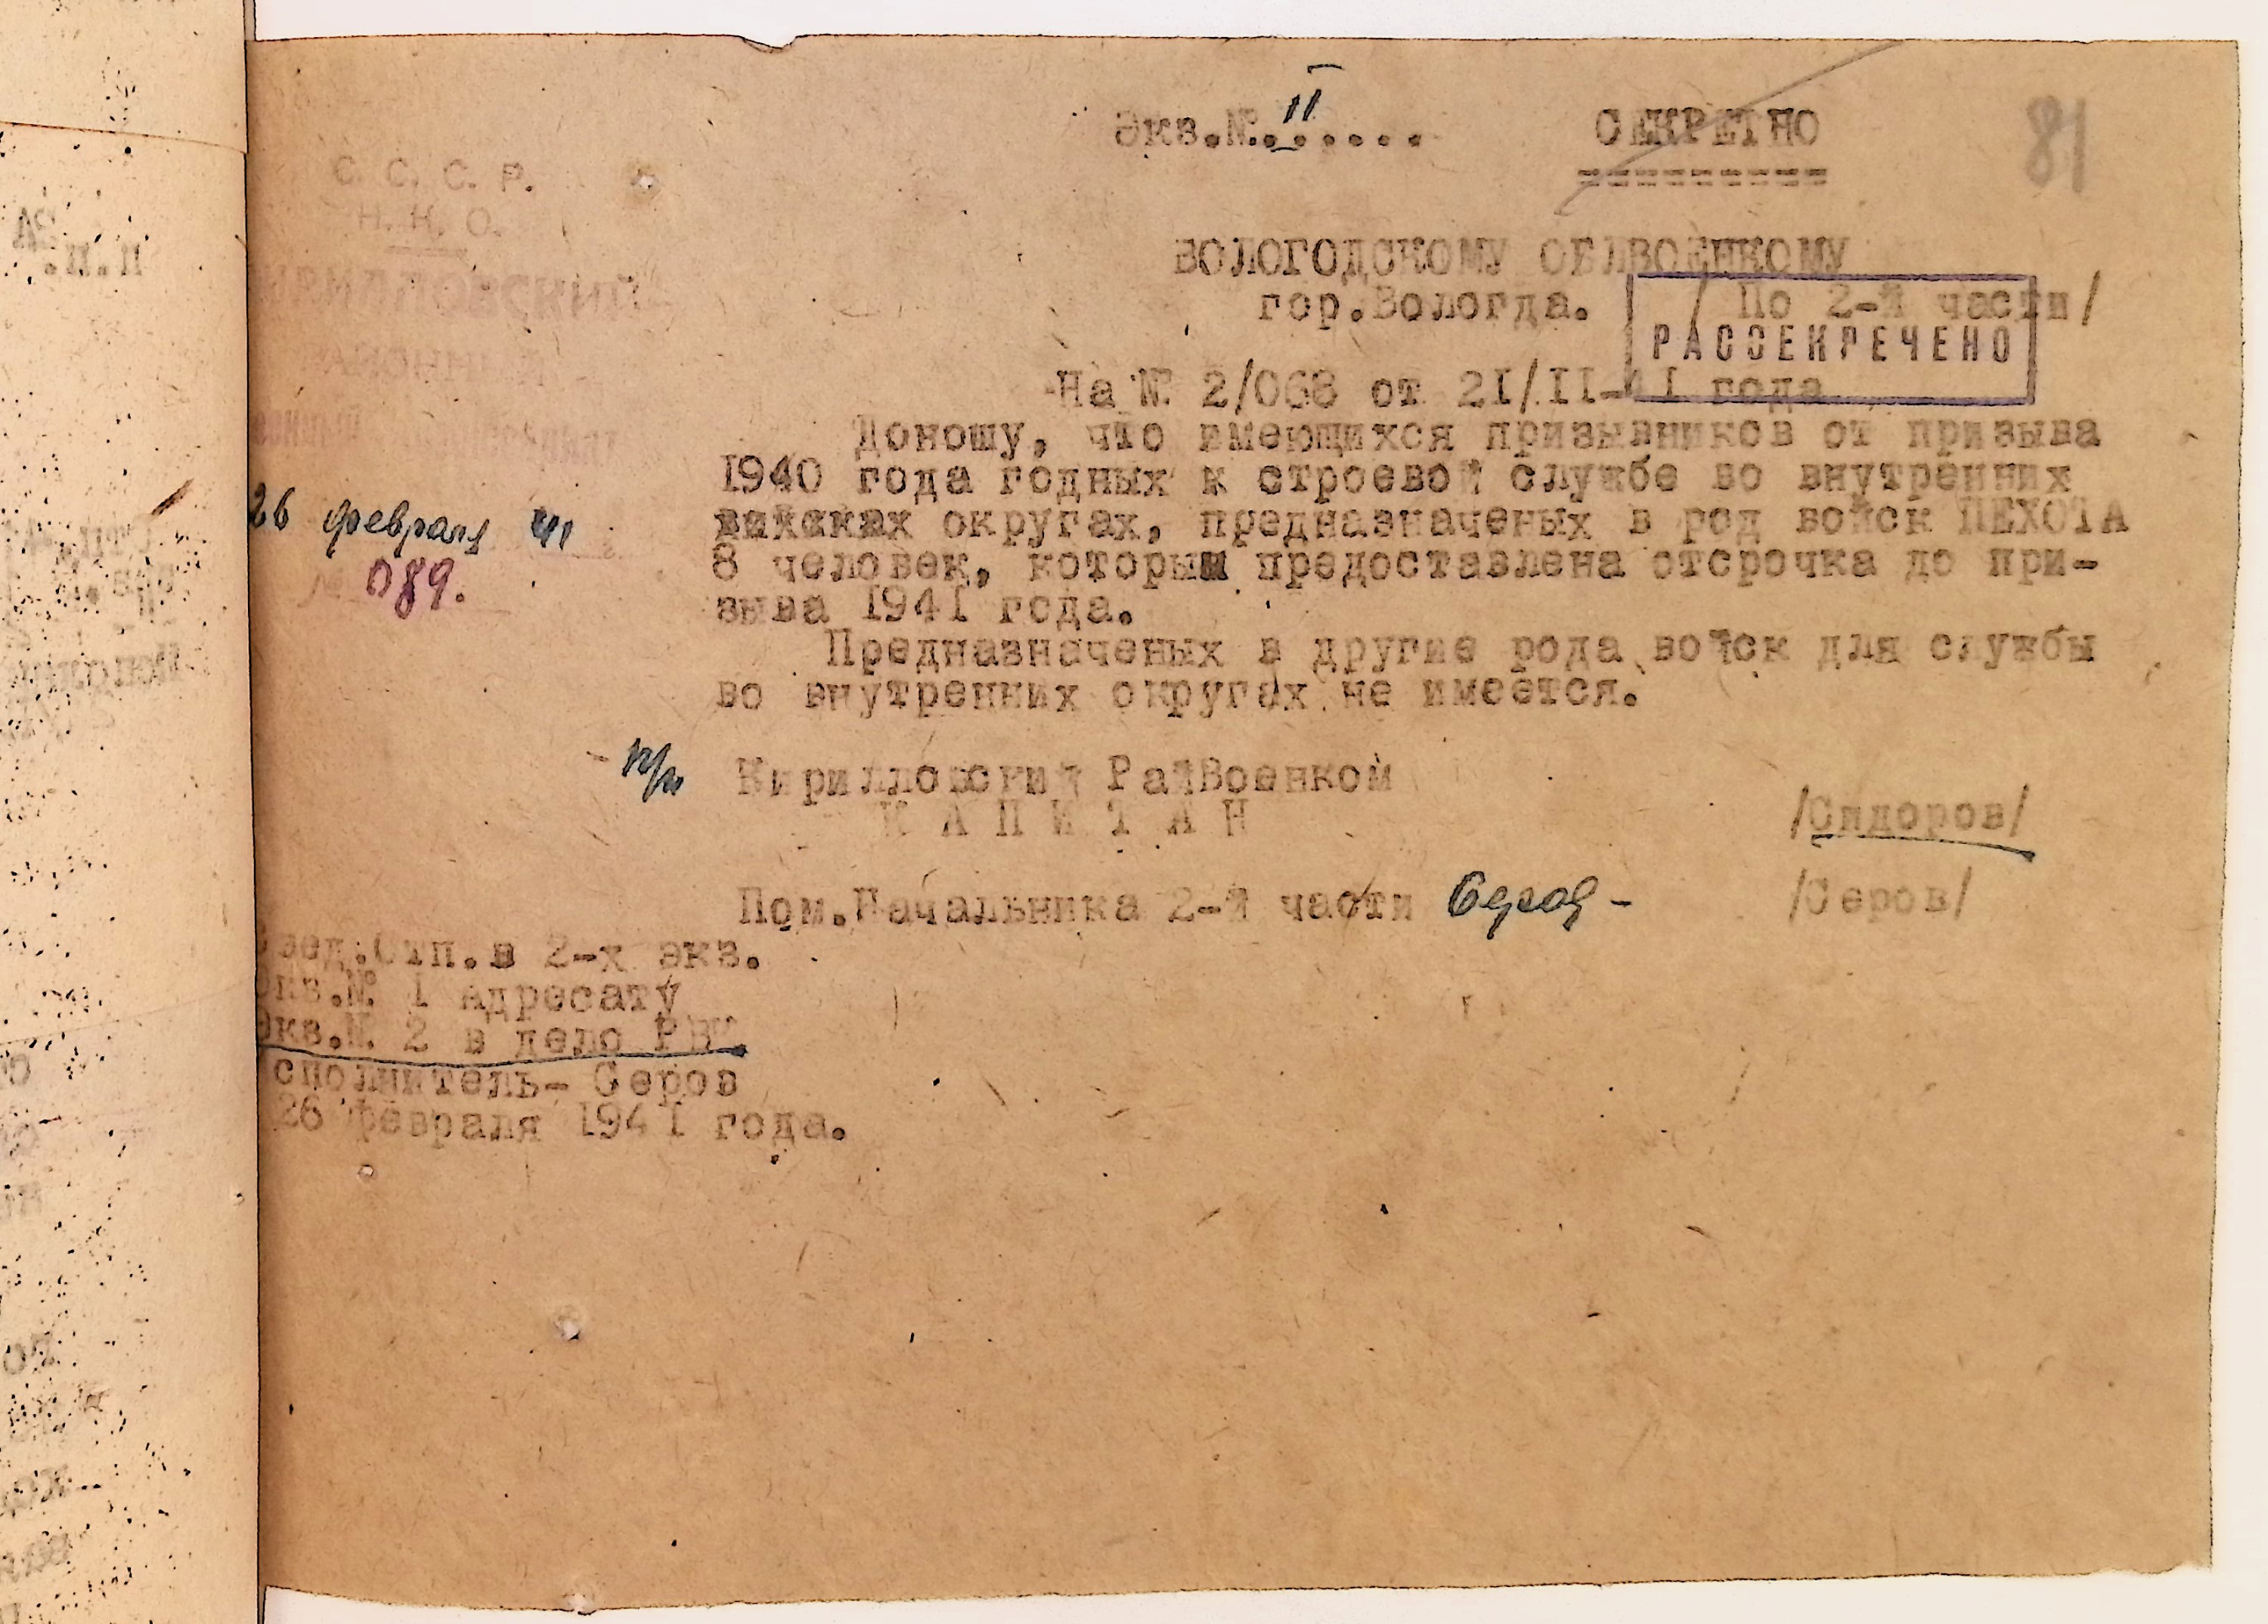 Экз.№.II......
СЕКРЕТНО
81
С. С. С. Р.
Н. К. О.
КИРИЛЛОВСКИЙ
26 февраля 41
№ 089.
ВОЛОГОДСКОМУ ОБЛВОЕНКОМУ
гор.Вологда. / По 2-й части/
РАССЕКРЕЧЕНО
На № 2/068 от 21/II-41 года
Доношу, что имеющихся призывников от призыва
1940 года годных к строевой службе во внутренних
округах, предназначеных в род войск ПЕХОТА
8 человек, которым предоставлена отсрочка до при-
зыва 1941 года.
Предназначеных в другие рода войск для службы
во внутренних округах не имеется.
п/п Кирилловский РайВоенком
КАПИТАН /Сидоров/
Пом.Начальника 2-й части Серов- /Серов/
отп.в 2-х экз.
Экз.№ 1 адресату
Экз.№ 2 в дело РВК.
сполнитель- Серов
26 февраля 1941 года.